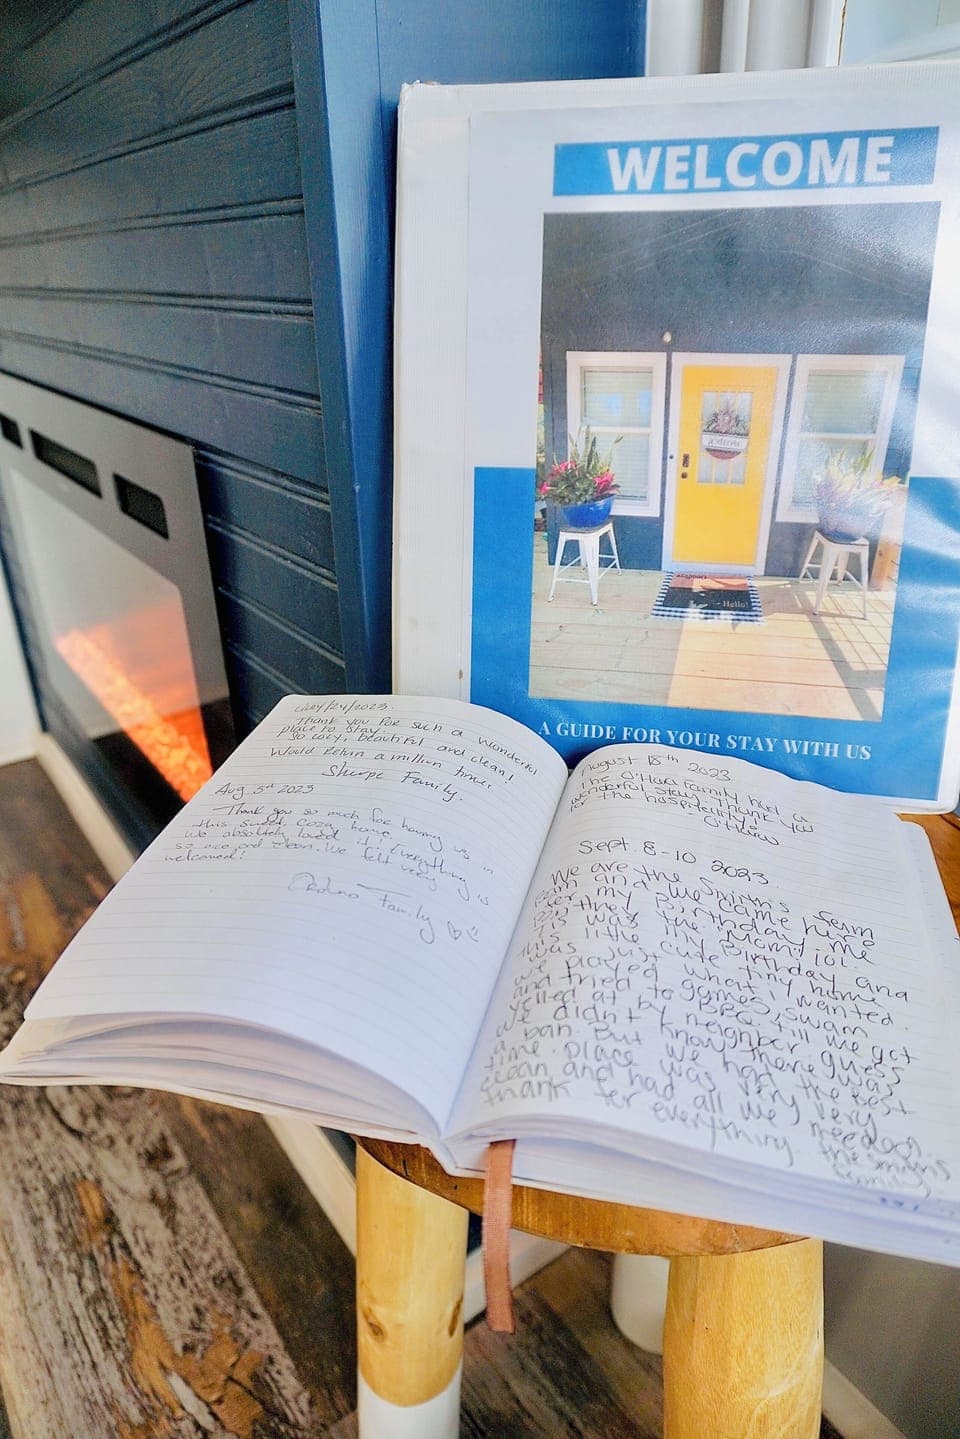 WELCOME
Welcome
Hello!
A GUIDE FOR YOUR STAY WITH US
July/24/2023.
Thank you for such a wonderful
place to stay.
So cozy, beautiful and clean!
Would Return a million times.
Sherpe Family.
Aug 5st 2023
Thank you so much for having us in
this sweet Cozy home.
We absolutely loved it! Everything is
so nice and clean. We felt very
welcomed!
Family
August 18th 2023
The O'Hara Family had a
wonderful stay. Thank you
for the hospitality!
- O'Hara
Sept. 8-10 2023.
We are the Smith's
and we came here
for my Birthday. Me
the mom!
Tis was my Birthday and
this little cute tiny home
was just what I wanted.
we played games, swam
and tried to BBQ till we got
yelled at by neighbor guess
we didn't know there was
a ban. But we had the best
time. Place was very very
clean and had all we needed.
thank for everything the Smiths
Family